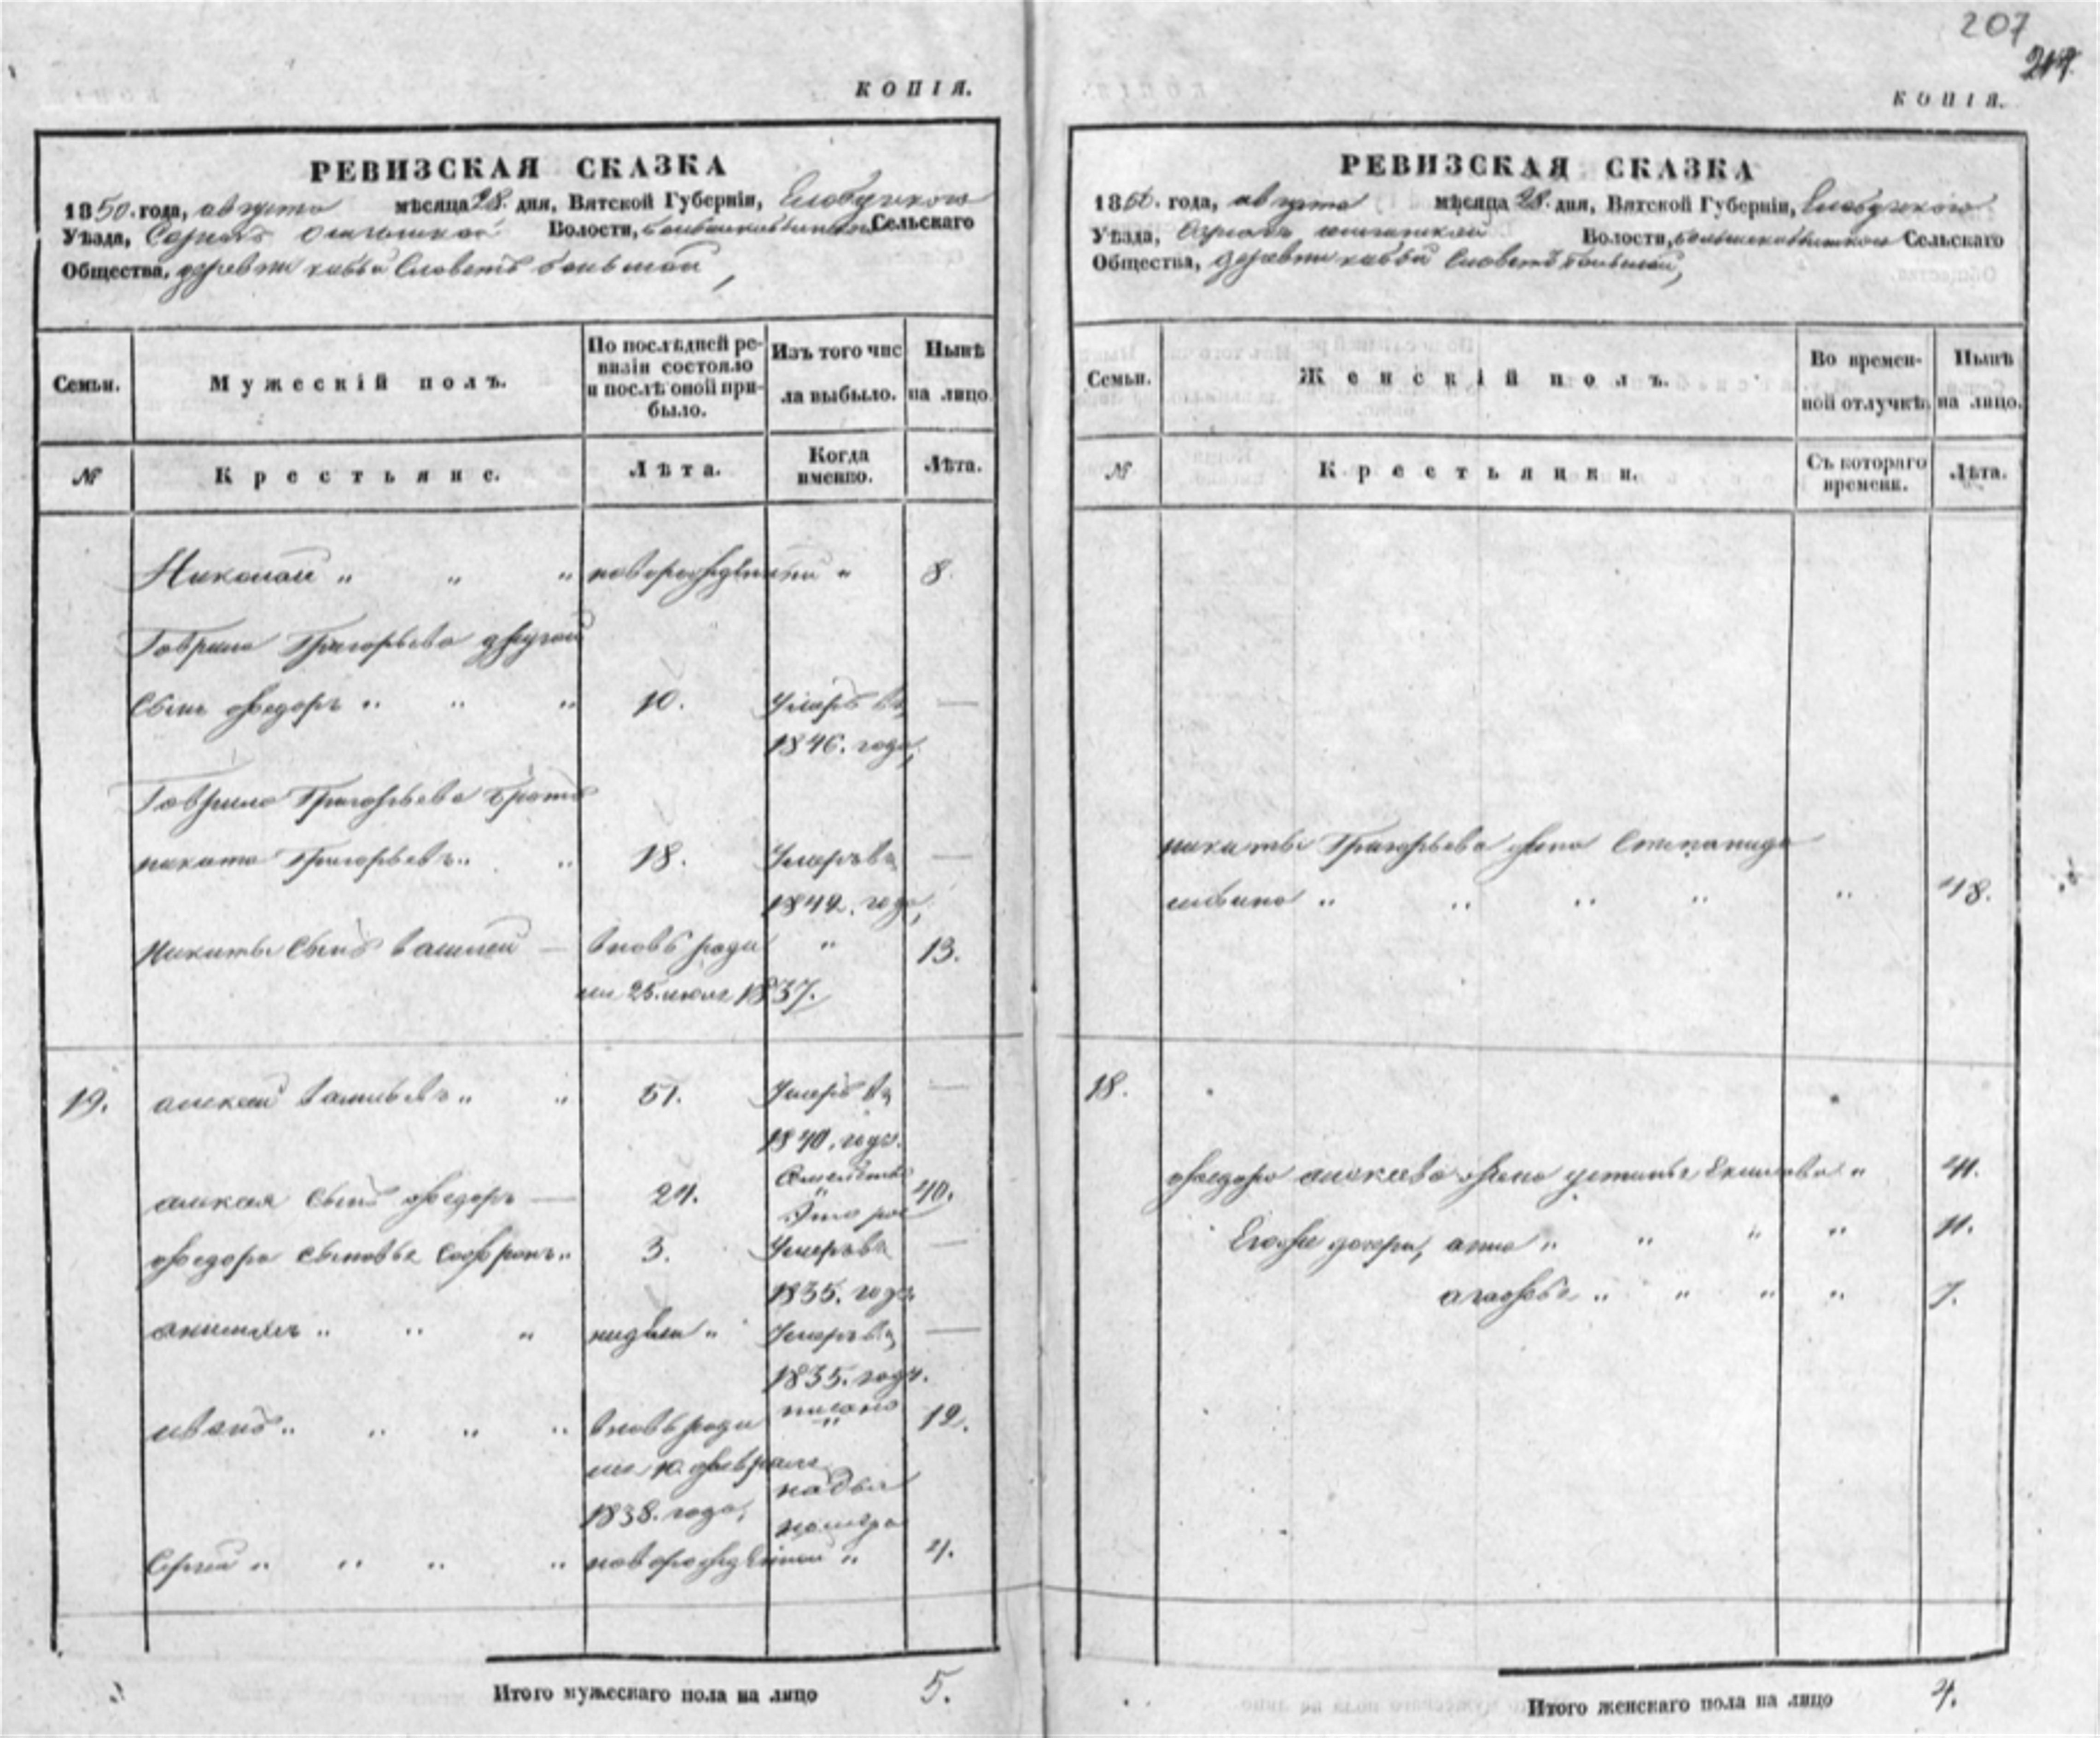 207
КОПІЯ.
РЕВИЗСКАЯ СКАЗКА
1850. года, августа мѣсяца 28. дня, Вятской Губерніи, Слободскаго
Уѣзда, Волости, Сельскаго
Общества, деревни
Семьи. Мужескій полъ. По послѣдней ревизіи состояло и послѣ оной прибыло. Изъ того числа выбыло. Нынѣ на лицо.
№ Крестьяне. Лѣта. Когда именно. Лѣта.
Николай " " " новорожденный " 8.
Гаврила Григорьева другой
сынъ Федоръ " " " 10. Умеръ въ —
1846. годе,
Гаврила Григорьева братъ
никита Григорьевъ " " 18. Умеръ въ —
1842. годе,
Никиты сынъ василей — вновь роди " 13.
ли 25. июля 1837.
19. алексей васильевъ " " 51. Умеръ въ —
1840. годе.
алексея сынъ федоръ — 24. Семейство 40.
это
федора сыновья Софронъ " 3. Умеръ въ —
1835. годе
анисимъ " " " недели " Умеръ въ —
1835. годе.
иванъ " " " " вновь роди писано 12.
ли 10. февраля
1838. года, на два
номера
Сергей " " " " новорожденной " 4.
Итого мужескаго пола на лицо 5.
КОПІЯ.
РЕВИЗСКАЯ СКАЗКА
1850. года, августа мѣсяца 28. дня, Вятской Губерніи, Слободскаго
Уѣзда, Волости, Сельскаго
Общества, деревни
Семьи. Женскій полъ. Во временной отлучкѣ. Нынѣ на лицо.
№ Крестьянки. Съ котораго времени. Лѣта.
никиты Григорьева жена Степанида
" " " " " 48.
18.
федора алексеева жена устинья Екимова " 41.
Егожи дочери, анна " " " " 11.
агафья " " " " 7.
Итого женскаго пола на лицо 4.